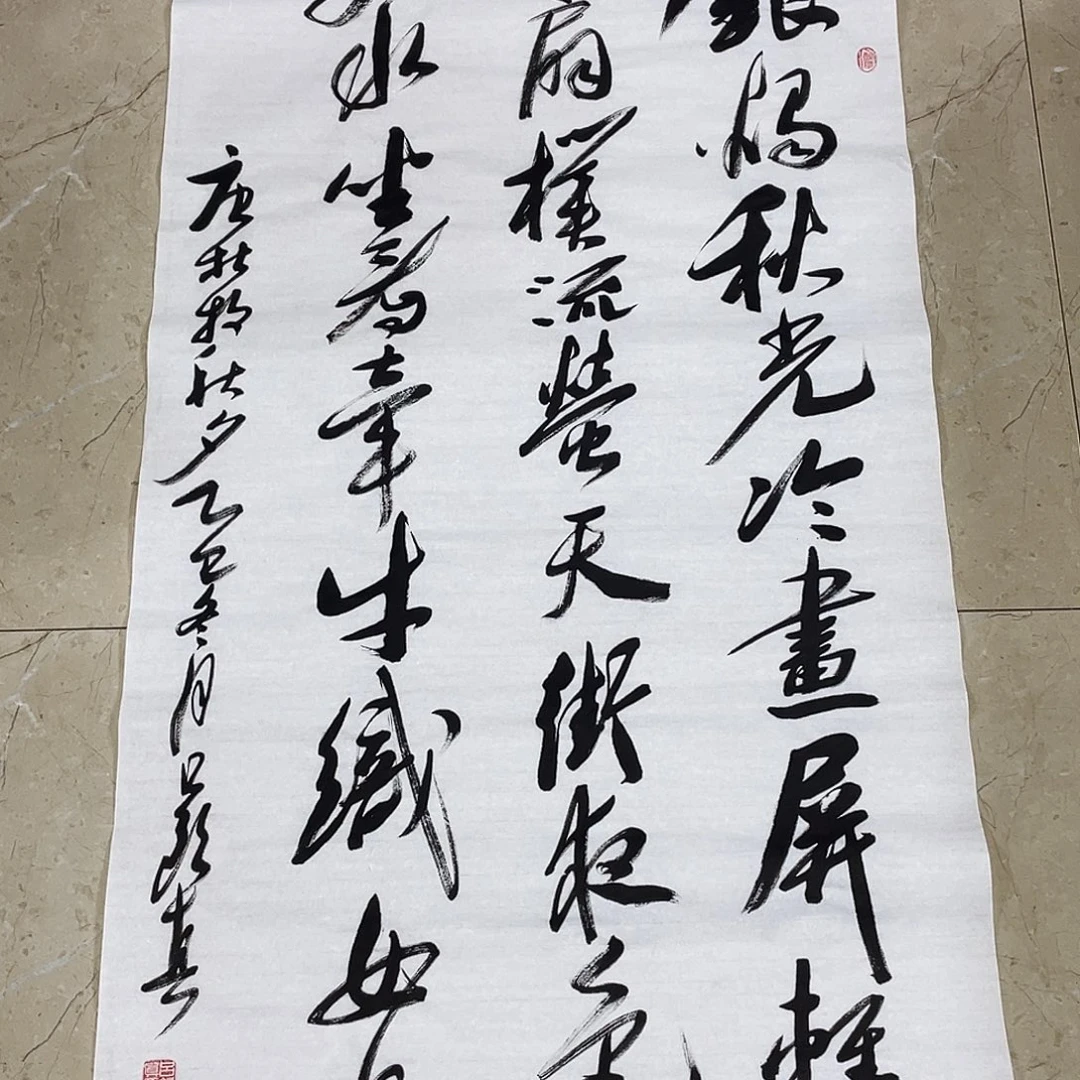 銀燭秋光冷畫屏輕
扇撲流螢天街夜色
水坐看牽牛織女
唐杜牧秋夕乙巳冬月呂真